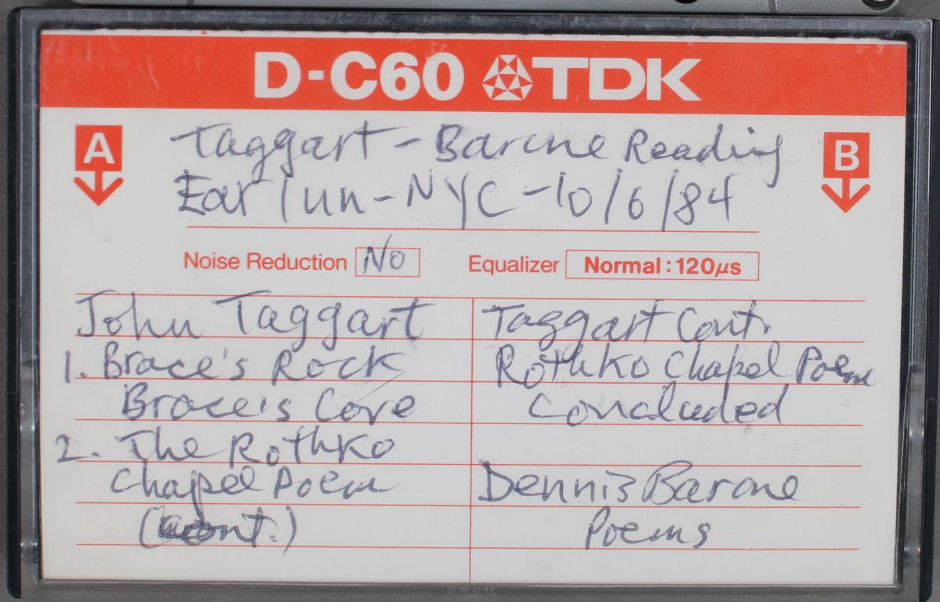 D-C60 TDK
A
B
Taggart - Barone Reading
Ear Inn - NYC - 10/6/84
Noise Reduction No
Equalizer Normal:120μs
John Taggart
1. Brace's Rock
Brace's Cove
2. The Rothko
Chapel Poem
(cont.)
Taggart Cont.
Rothko Chapel Poem
Concluded
Dennis Barone
Poems